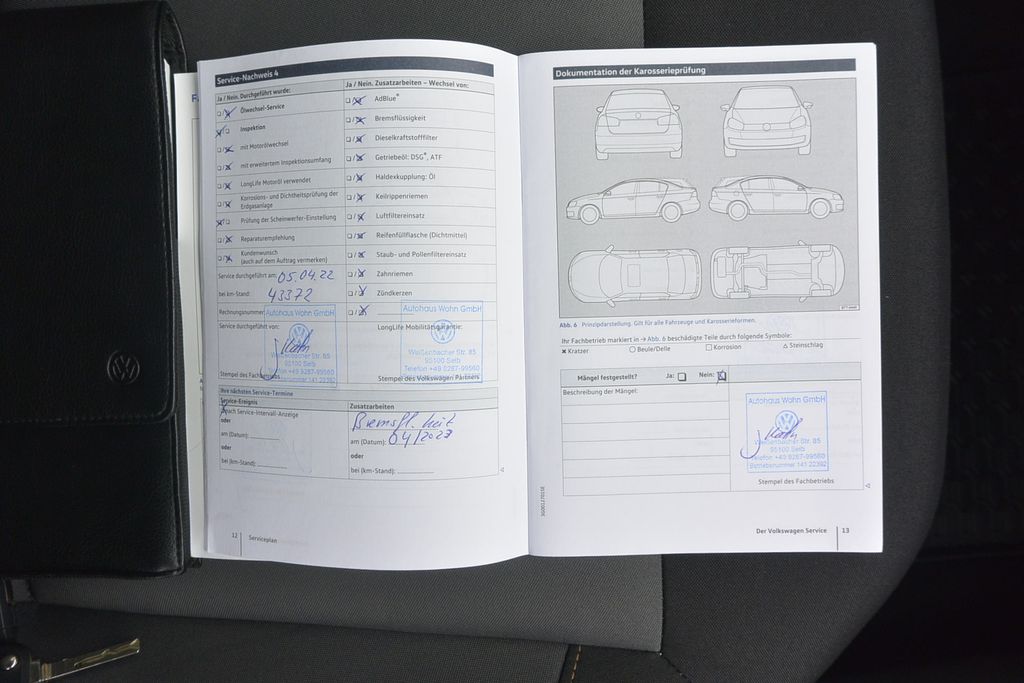 Service-Nachweis 4
Ja / Nein. Durchgeführt wurde:
Ölwechsel-Service
Inspektion
mit Motorölwechsel
mit erweitertem Inspektionsumfang
LongLife Motoröl verwendet
Korrosions- und Dichtheitsprüfung der
Erdgasanlage
Prüfung der Scheinwerfer-Einstellung
Reparaturempfehlung
Kundenwunsch
(auch auf dem Auftrag vermerken)
Service durchgeführt am: 05.04.22
bei km-Stand: 43372
Rechnungsnummer:
Service durchgeführt von:
Autohaus Wohn GmbH
Weißenbacher Str. 85
95100 Selb
Telefon +49 9287-99560
Betriebsnummer 141 22392
Stempel des Fachbetriebs
Ja / Nein. Zusatzarbeiten – Wechsel von:
AdBlue®
Bremsflüssigkeit
Dieselkraftstofffilter
Getriebeöl: DSG®, ATF
Haldexkupplung: Öl
Keilrippenriemen
Luftfiltereinsatz
Reifenfüllflasche (Dichtmittel)
Staub- und Pollenfiltereinsatz
Zahnriemen
Zündkerzen
LongLife Mobilitätsgarantie:
Autohaus Wohn GmbH
Weißenbacher Str. 85
95100 Selb
Telefon +49 9287-99560
Betriebsnummer 141 22392
Stempel des Volkswagen Partners
Ihre nächsten Service-Termine
Service-Ereignis
nach Service-Intervall-Anzeige
oder
am (Datum):
oder
bei (km-Stand):
Zusatzarbeiten
am (Datum): 04/2023
oder
bei (km-Stand):
12 Serviceplan
Dokumentation der Karosserieprüfung
Abb. 6 Prinzipdarstellung. Gilt für alle Fahrzeuge und Karosserieformen.
Ihr Fachbetrieb markiert in → Abb. 6 beschädigte Teile durch folgende Symbole:
Kratzer Beule/Delle Korrosion Steinschlag
Mängel festgestellt? Ja: Nein:
Beschreibung der Mängel:
Autohaus Wohn GmbH
Weißenbacher Str. 85
95100 Selb
Telefon +49 9287-99560
Betriebsnummer 141 22392
Stempel des Fachbetriebs
Der Volkswagen Service 13